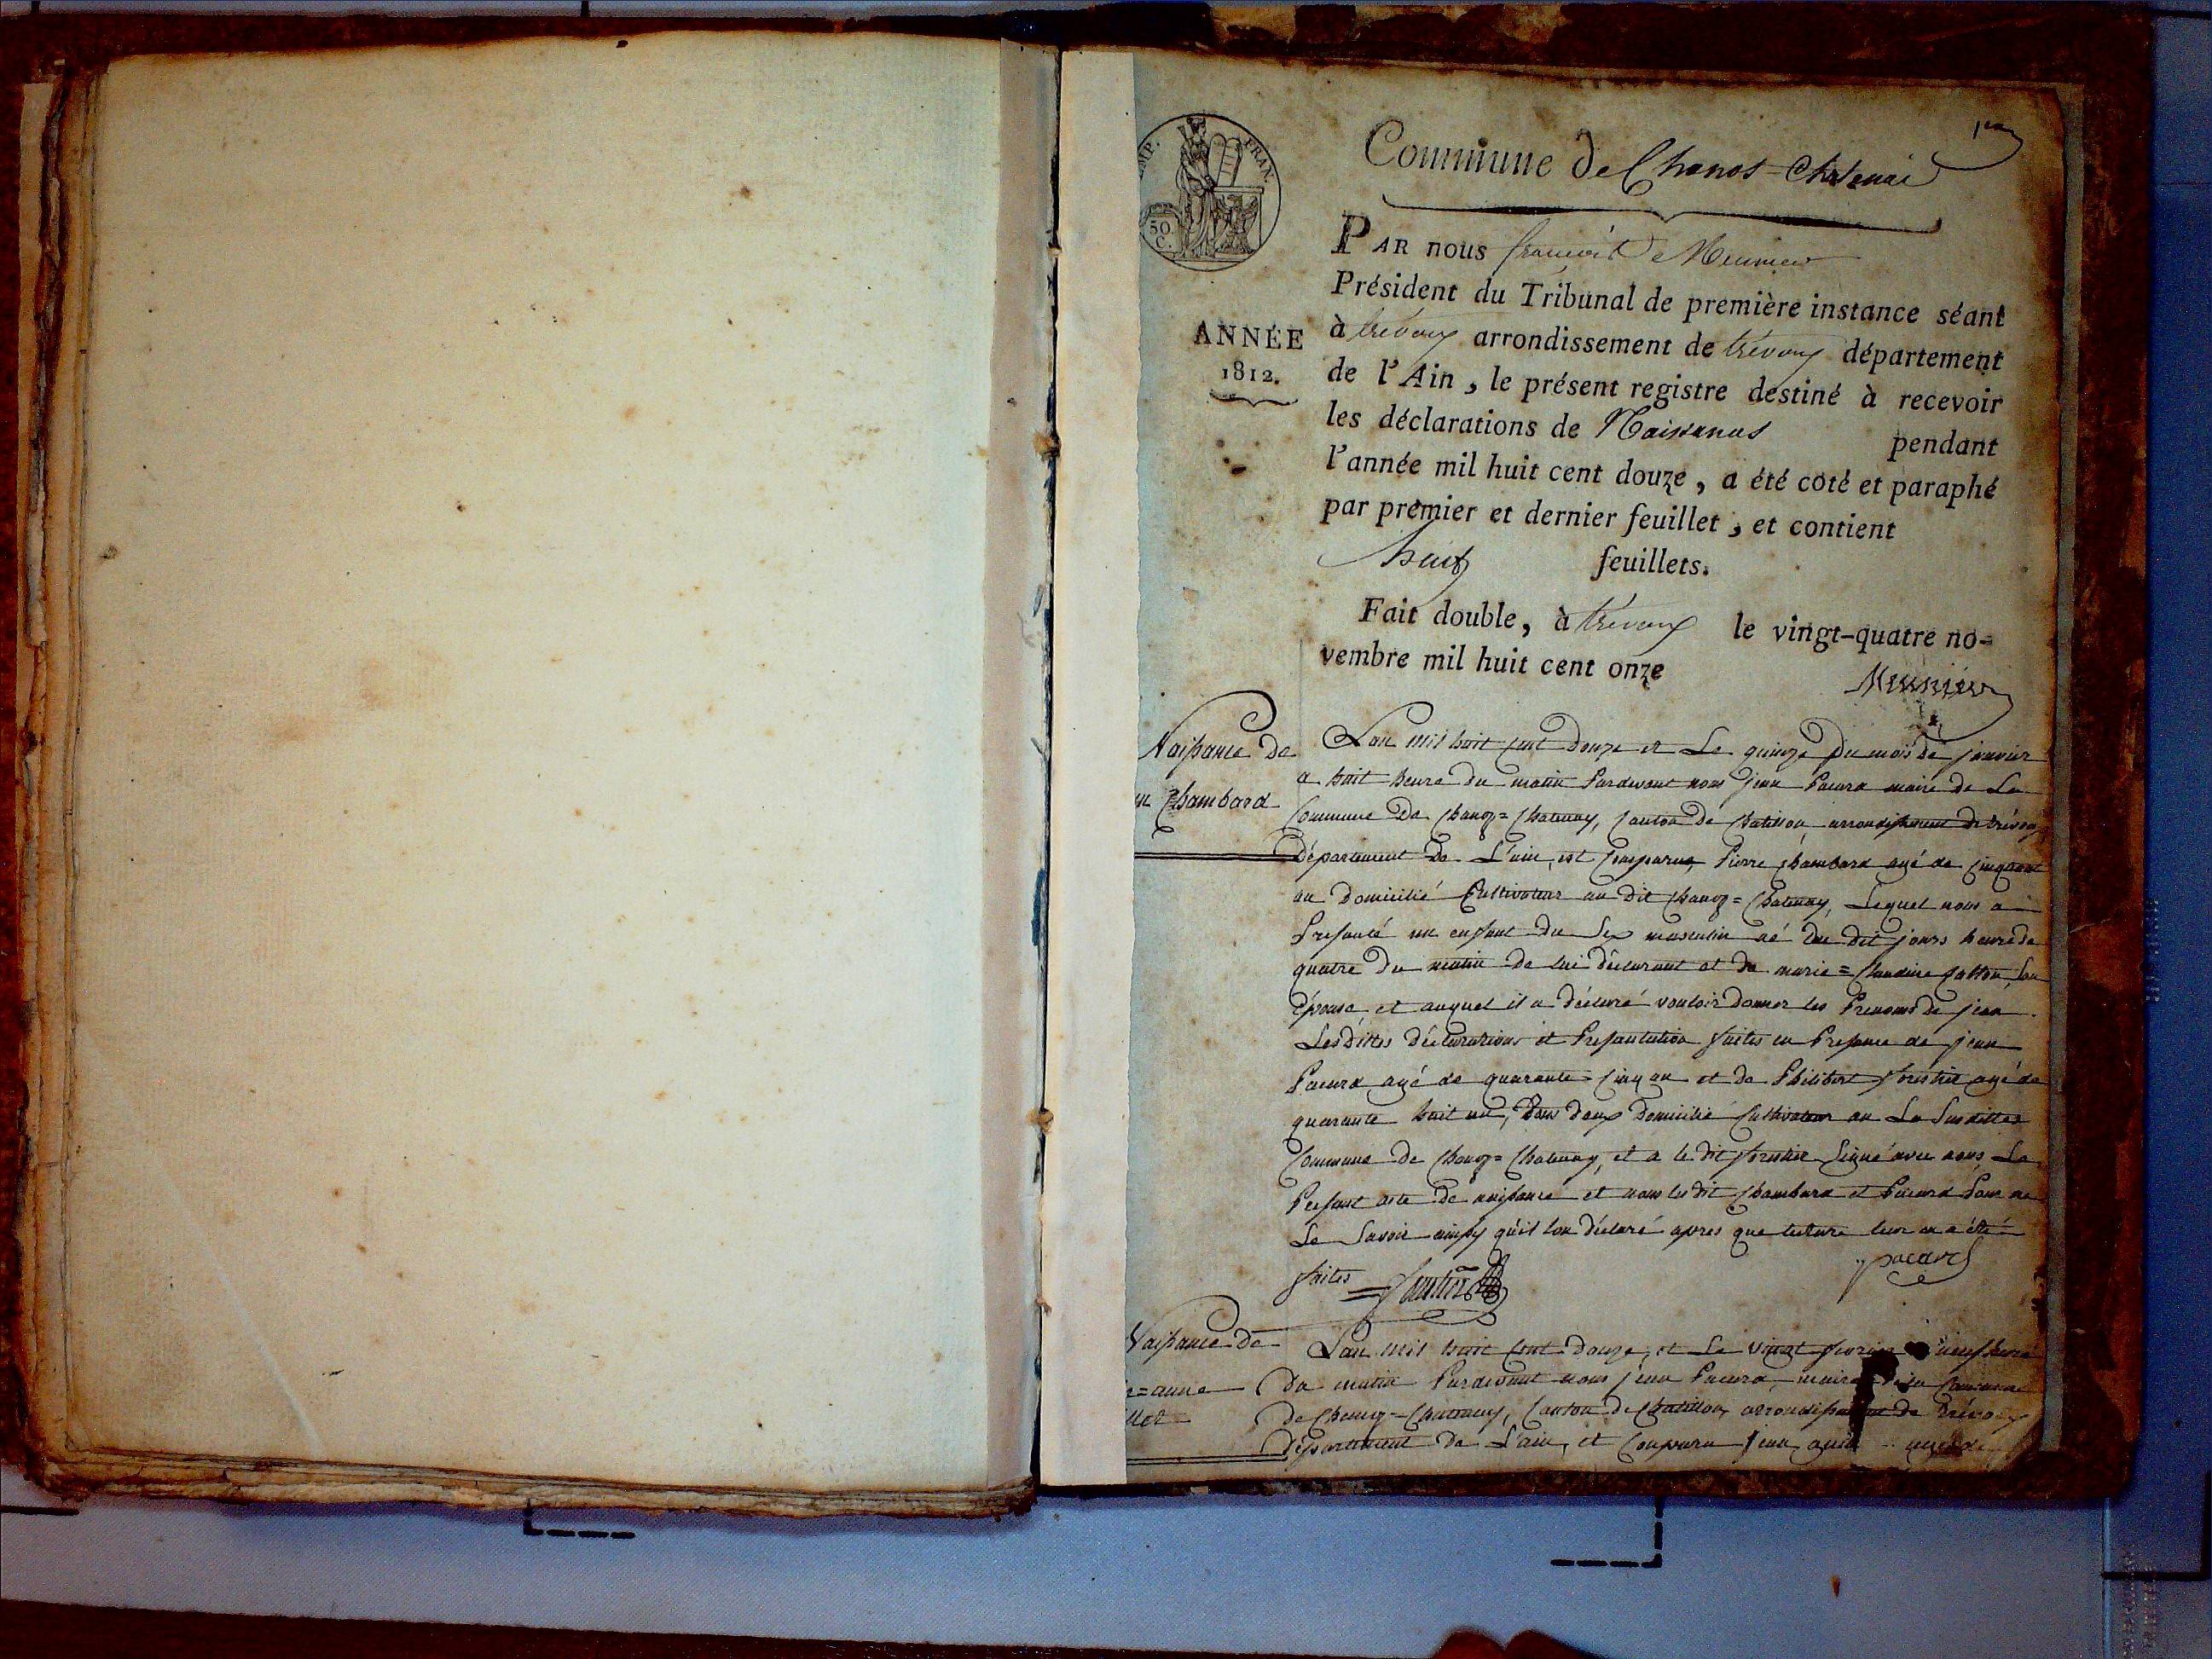 1er
Commune de Chanos=Chatenai
IMP. FRAN.
50
C.
PAR nous françois Meunier
Président du Tribunal de première instance séant
à trévoux arrondissement de trévoux département
ANNÉE
1812.
de l'Ain, le présent registre destiné à recevoir
les déclarations de Naissances pendant
l'année mil huit cent douze, a été coté et paraphé
par premier et dernier feuillet, et contient
huit feuillets.
Fait double, à trévoux le vingt-quatre no-
vembre mil huit cent onze
Meunier
Naissance de
Chambard
L'an mil huit cent douze et Le quinze du mois de janvier
a huit heure du matin Pardevant nous jean Pacard maire de La
Commune De Chanoz=Chatenay, Canton De Chatillon arrondissement de trévoux
Département De L'ain, est Comparus Pierre Chambard agé de Cinquant
an Domicilié Cultivateur au Dit Chanoz=Chatenay, Lequel nous a
Presanté un enfant du Sex masculin né du dit jours heure de
quatre du matin de lui déclarant et de marie=Claudine son
épouse, et auquel il a déclaré vouloir donner les Prenoms de jean
Lesdittes déclarations et Presantation faites en Presance de jean
Pacard agé de quarante Cinq an et de Philibert forestier agé de
quarante huit an, tous deux Domicilié Cultivateur au La Susdittes
Commune de Chanoz=Chatenay, et a le dit forestier Signé avec nous Le
Present acte de naissance et nom les dit Chambard et Pacard Pour ne
Le Savoir ainsy qu'il lon déclaré apres que lecture leur en a étté
faites
pacard
Naissance de
=anne
L'an mil huit Cent douze, et Le vingt fevrier neuf heure
du matin Pardevant nous jean Pacard, maire de la Commune
De Chanoz=Chatenay, Canton de Chatillon, arrondissement de Trévoux
Département de L'ain, et Comparu jean agé de